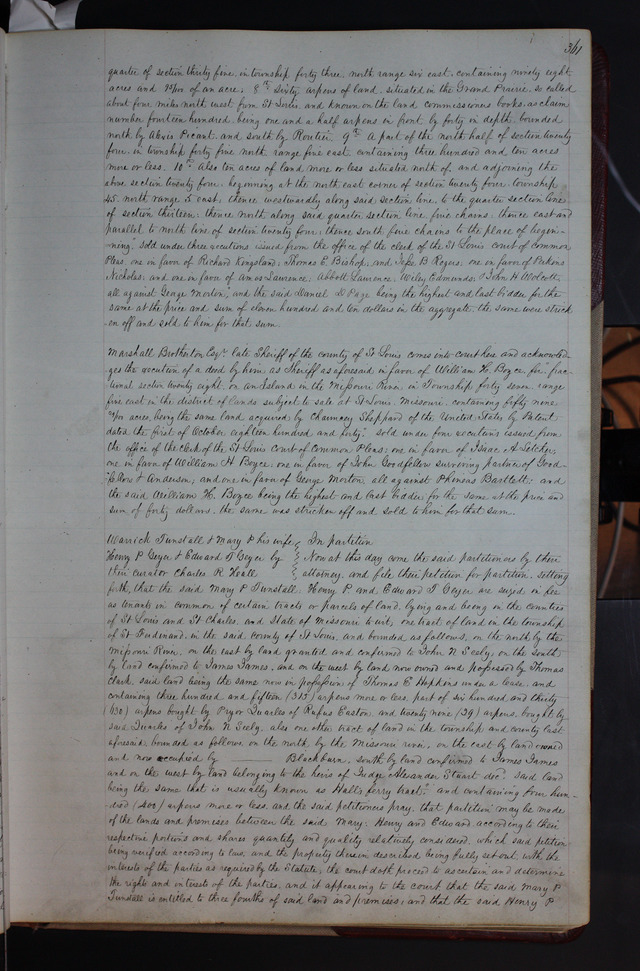 361
quarter of section thirty five, in township forty three, north range six east, containing ninety eight
acres and /100 of an acre; 8th Sixty arpens of land, situated in the Grand Prairie, so called
about four miles north west from St Louis, and known on the land commissioners books, as claim
number fourteen hundred, being one and a half arpens in front by forty in depth, bounded
north by Alexis Picart, and south by Routier. 9th A part of the north half of section twenty
four, in township forty five north range five east, containing three hundred and ten acres
more or less. 10th also ten acres of land more or less situated north of and adjoining the
above section twenty four, beginning at the north east corner of section twenty four, township
45 north range 5 east, thence westwardly along said section line, to the quarter section line
of section thirteen; thence north along said quarter section line, five chains; thence east and
parallel to north line of section twenty four; thence south five chains to the place of begin-
ning," sold under three executions issued from the office of the clerk of the St Louis court of common
Pleas, one in favor of Richard Kingsland, Thomas E Bishop, and Jesse B Rogers; one in favor of Perkins
Nicholas; and one in favor of Amos Lawrence, Abbott Lawrence, Wiley Edmunds, & John H Wolcott,
all against George Morton," and the said Daniel D Page being the highest and last bidder for the
same at the price and sum of eleven hundred and ten dollars in the aggregate, the same were strick-
en off and sold to him for that sum.
Marshall Brotherton Esqr. late Sheriff of the county of St Louis comes into court here and acknowled-
ges the execution of a deed by him as Sheriff as aforesaid in favor of William H. Boyce, for "frac-
tional section twenty eight, on an Island in the Missouri River, in Township forty seven, range
five east in the district of lands subject to sale at St Louis, Missouri, containing fifty nine
/100 acres, being the same land acquired by Chauncey Sheppard of the United States by Patent
dated the first of October eighteen hundred and forty," sold under four executions issued from
the office of the clerk of the St Louis Court of Common Pleas; one in favor of Isaac A Letcher;
one in favor of William H Boyce; one in favor of John Goodfellow surviving partner of Good-
fellow & Anderson; and one in favor of George Morton, all against Phineas Bartlett; and
the said William H. Boyce being the highest and last bidder for the same at the price and
sum of forty dollars, the same was stricken off and sold to him for that sum.
Warrick Tunstall & Mary P his wife } In partition
Henry P Geyer & Edward T Geyer by } Now at this day come the said petitioners by their
their curator Charles R Hall } attorney, and file their petition for partition, setting
forth, that the said Mary P Tunstall, Henry P and Edward T Geyer are seized in fee
as tenants in common of certain tracts or parcels of land, lying and being in the counties
of St Louis and St Charles, and State of Missouri to wit, one tract of land in the township
of St Ferdinand, in the said county of St Louis, and bounded as follows, on the north by the
Missouri River, on the east by land granted and confirmed to John N Seely, on the south
by land confirmed to James James, and on the west by land now owned and possessed by Thomas
Clark, said land being the same now in possession of Thomas E Hopkins under a lease, and
containing three hundred and fifteen (315) arpens more or less, part of six hundred and thirty
(630) arpens bought by Pryor Quarles of Rufus Easton, and twenty nine (29) arpens, bought by
said Quarles of John N Seely, also one other tract of land in the township and county last
aforesaid, bounded as follows, on the north, by the Missouri river, on the east by land owned
and now occupied by Blackburn, south by land confirmed to James James
and on the west by land belonging to the heirs of Judge Alexander Stuart decd said land
being the same that is usually known as "Hall's ferry tract," and containing four hun-
dred (400) arpens more or less and the said petitioners pray, that partition may be made
of the lands and premises between the said Mary, Henry and Edward according to their
respective portions and shares quantity and quality relatively considered, which said petition
being verified according to law, and the property therein described being fully set out, with the
interests of the parties as required by the Statute, the court doth proceed to ascertain and determine
the right and interests of the parties, and it appearing to the court that the said Mary P
Tunstall is entitled to three fourths of said land and premises; and that the said Henry P